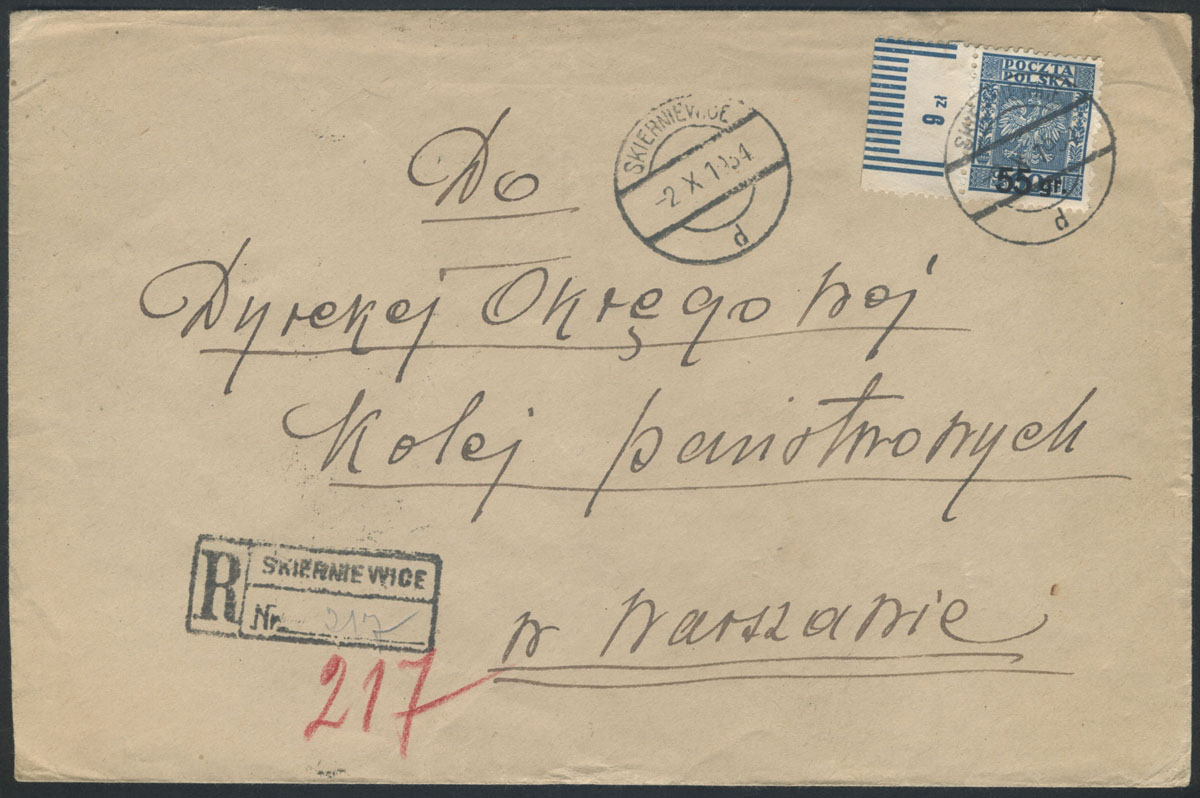 POCZTA
POLSKA
9 zł
55 gr.
SKIERNIEWICE
-2 X 1934
d
d
Do
Dyrekcj Okręgowej
Kolej państwowych
w Warszawie
R
SKIERNIEWICE
Nr. 217
217